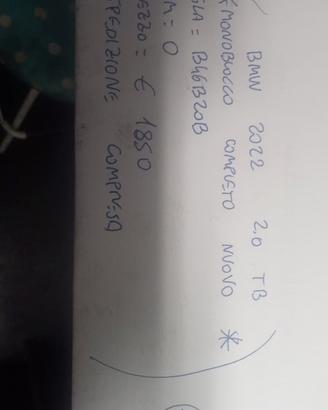 BMW 2022 2.0 TB
MONOBLOCCO COMPLETO NUOVO *
= B46B20B
M = 0
EZZO = € 1850
PEDIZIONE COMPRESA